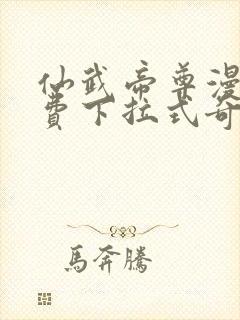 仙武帝尊漫
費下拉式奇
馬奔騰